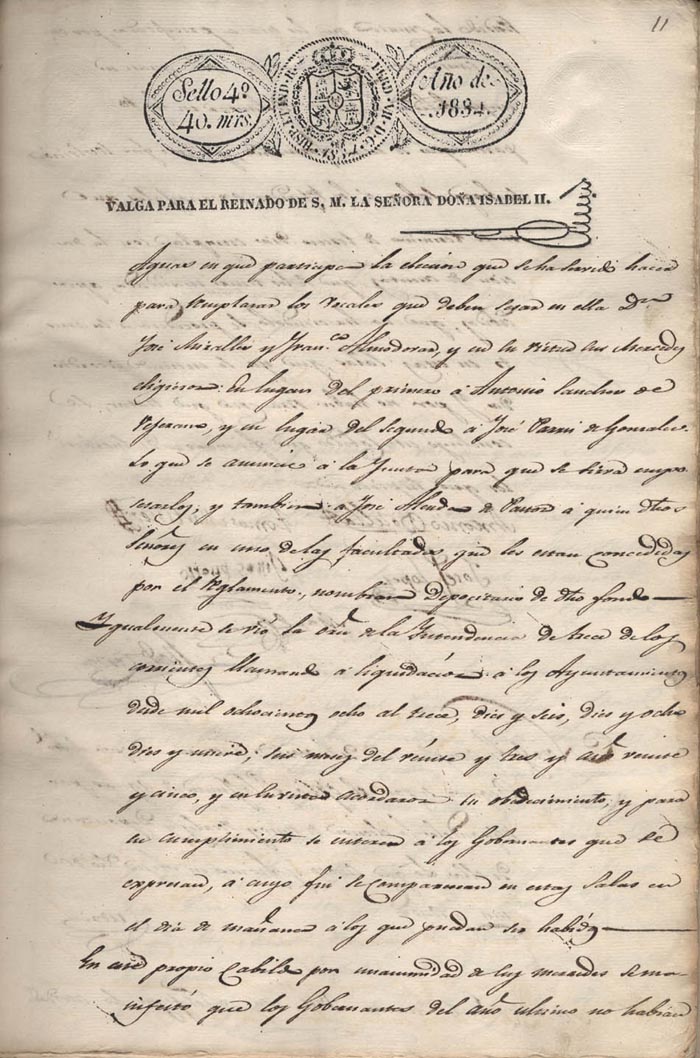 11
Sello 4º
40. mrs.
HISP. ET IND. R. FERD. VII. D. G.
1834
Año de
1834.
VALGA PARA EL REINADO DE S. M. LA SEÑORA DOÑA ISABEL II.
Aguas en que participa la eleccion que se ha servido hacer
para remplazar los vocales que deben cesar en ella Dn
José Miralles y Franco Almodovar, y en su virtud sus Mercedes
eligieron: En lugar del primero á Antonio Sanchez de
Vejerano, y en lugar del segundo á José Parri de Gonzalez
Lo que se anuncie á la Junta para que se sirva empo
sesarlos, y tambien á José Alenda de Parra á quien dhos
Señores en uso de las facultades que les estan concedidas
por el Reglamento, nombran Depocitario de dho fondo
Ygualmente se vio la orn de la Yntendencia de trece de los
corrientes llamando á liquidacion á los Ayuntamientos
desde mil ochocientos ocho al trece, dies y seis, dies y ocho
dies y nueve, seis meses del veinte y tres y año veinte
y cinco, y en su vista acordaron su obedecimiento, y para
su cumplimiento se enteren á los Gobernantes que se
expresan, á cuyo fin se comparescan en estas Salas en
el dia de mañana á los que puedan ser habidos
En este propio Cabildo por unanimidad de sus mercedes se ma
nifestó que los Gobernantes del año ultimo no habian